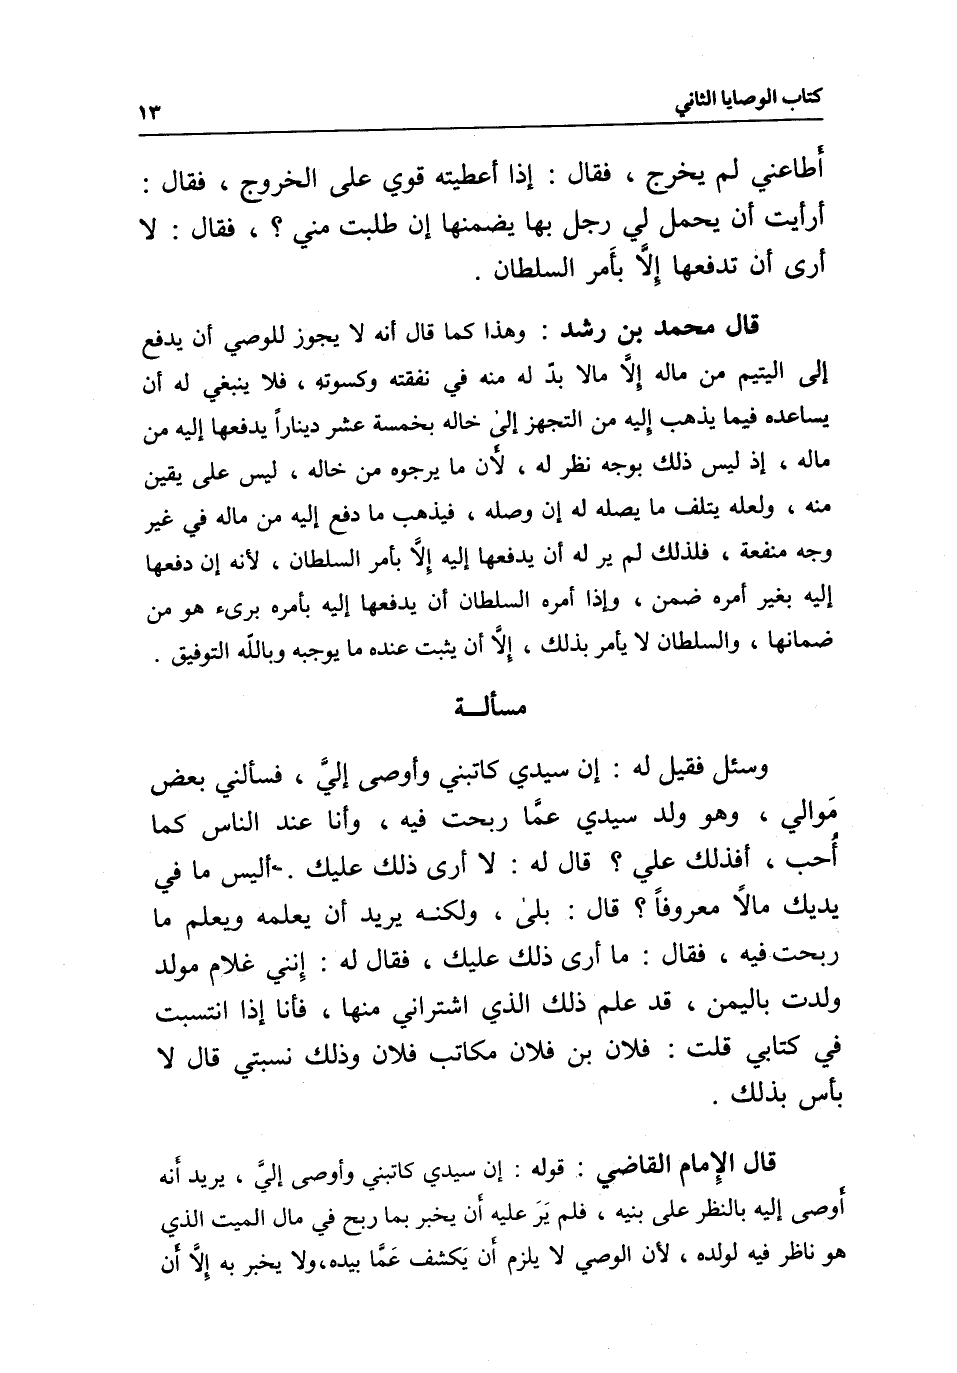 كتاب الوصايا الثاني ١٣
أطاعني لم يخرج ، فقال : إذا أعطيته قوي على الخروج ، فقال :
أرأيت أن يحمل لي رجل بها يضمنها إن طلبت مني ؟ ، فقال : لا
أرى أن تدفعها إلَّا بأمر السلطان .
قال محمد بن رشد : وهذا كما قال أنه لا يجوز للوصي أن يدفع
إلى اليتيم من ماله إلَّا مالا بدّ له منه في نفقته وكسوته ، فلا ينبغي له أن
يساعده فيما يذهب إليه من التجهز إلىٰ خاله بخمسة عشر ديناراً يدفعها إليه من
ماله ، إذ ليس ذلك بوجه نظر له ، لأن ما يرجوه من خاله ، ليس على يقين
منه ، ولعله يتلف ما يصله له إن وصله ، فيذهب ما دفع إليه من ماله في غير
وجه منفعة ، فلذلك لم ير له أن يدفعها إليه إلَّا بأمر السلطان ، لأنه إن دفعها
إليه بغير أمره ضمن ، وإذا أمره السلطان أن يدفعها إليه بأمره برىء هو من
ضمانها ، والسلطان لا يأمر بذلك ، إلَّا أن يثبت عنده ما يوجبه وباللّه التوفيق .
مسألـــة
وسئل فقيل له : إن سيدي كاتبني وأوصى إليَّ ، فسألني بعض
مَوالي ، وهو ولد سيدي عمَّا ربحت فيه ، وأنا عند الناس كما
أُحب ، أفذلك علي ؟ قال له : لا أرى ذلك عليك .-أليس ما في
يديك مالاً معروفاً ؟ قال : بلىٰ ، ولكنـه يريد أن يعلمه ويعلم ما
ربحت فيه ، فقال : ما أرى ذلك عليك ، فقال له : إنني غلام مولد
ولدت باليمن ، قد علم ذلك الذي اشتراني منها ، فأنا إذا انتسبت
في كتابي قلت : فلان بن فلان مكاتب فلان وذلك نسبتي قال لا
بأس بذلك .
قال الإمام القاضي : قوله : إن سيدي كاتبني وأوصى إليَّ ، يريد أنه
أوصى إليه بالنظر على بنيه ، فلم يَرَ عليه أن يخبر بما ربح في مال الميت الذي
هو ناظر فيه لولده ، لأن الوصي لا يلزم أن يَكشف عَمَّا بيده،ولا يخبر به إلَّا أن